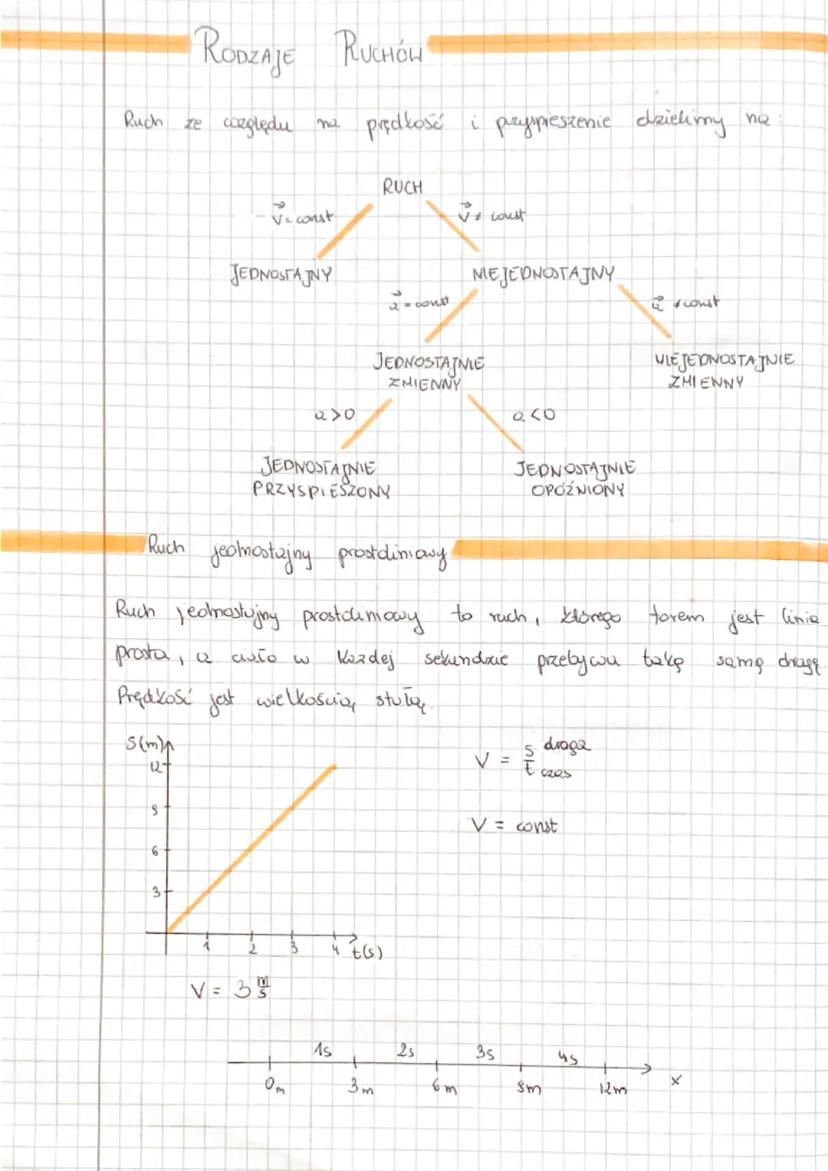 RODZAJE RUCHÓW
Ruch ze względu na prędkość i przyspieszenie dzielimy na:
RUCH
v⃗ = const v⃗ ≠ const
JEDNOSTAJNY NIEJEDNOSTAJNY
a⃗ = const a⃗ ≠ const
JEDNOSTAJNIE ZMIENNY NIEJEDNOSTAJNIE ZMIENNY
a>0 a<0
JEDNOSTAJNIE PRZYSPIESZONY JEDNOSTAJNIE OPÓŹNIONY
Ruch jednostajny prostoliniowy
Ruch jednostajny prostoliniowy to ruch, którego torem jest linia
prosta, a ciało w każdej sekundzie przebywa taką samą drogę
Prędkość jest wielkością stałą.
S(m)
12
9
6
3
1 2 3 4 t(s)
V = s/t droga czas
V = const
V = 3 m/s
1s 2s 3s 4s
0m 3m 6m 9m 12m x